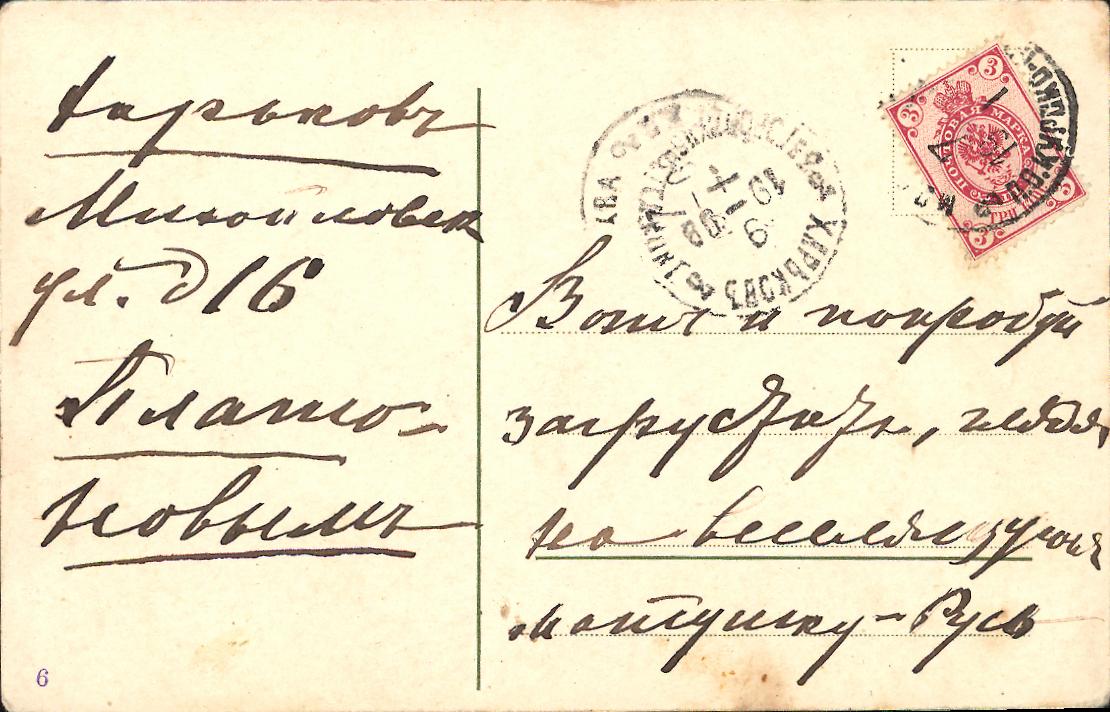 Харьковъ
Михайловск
ул. д 16
Плато-
новымъ
6
ХАРЬКОВЪ
19-X
9
3
3
3
ПОЧТОВАЯ МАРКА
Вотъ и попробуй
загрустить, глядя
на веселящуюся
матушку-Русь